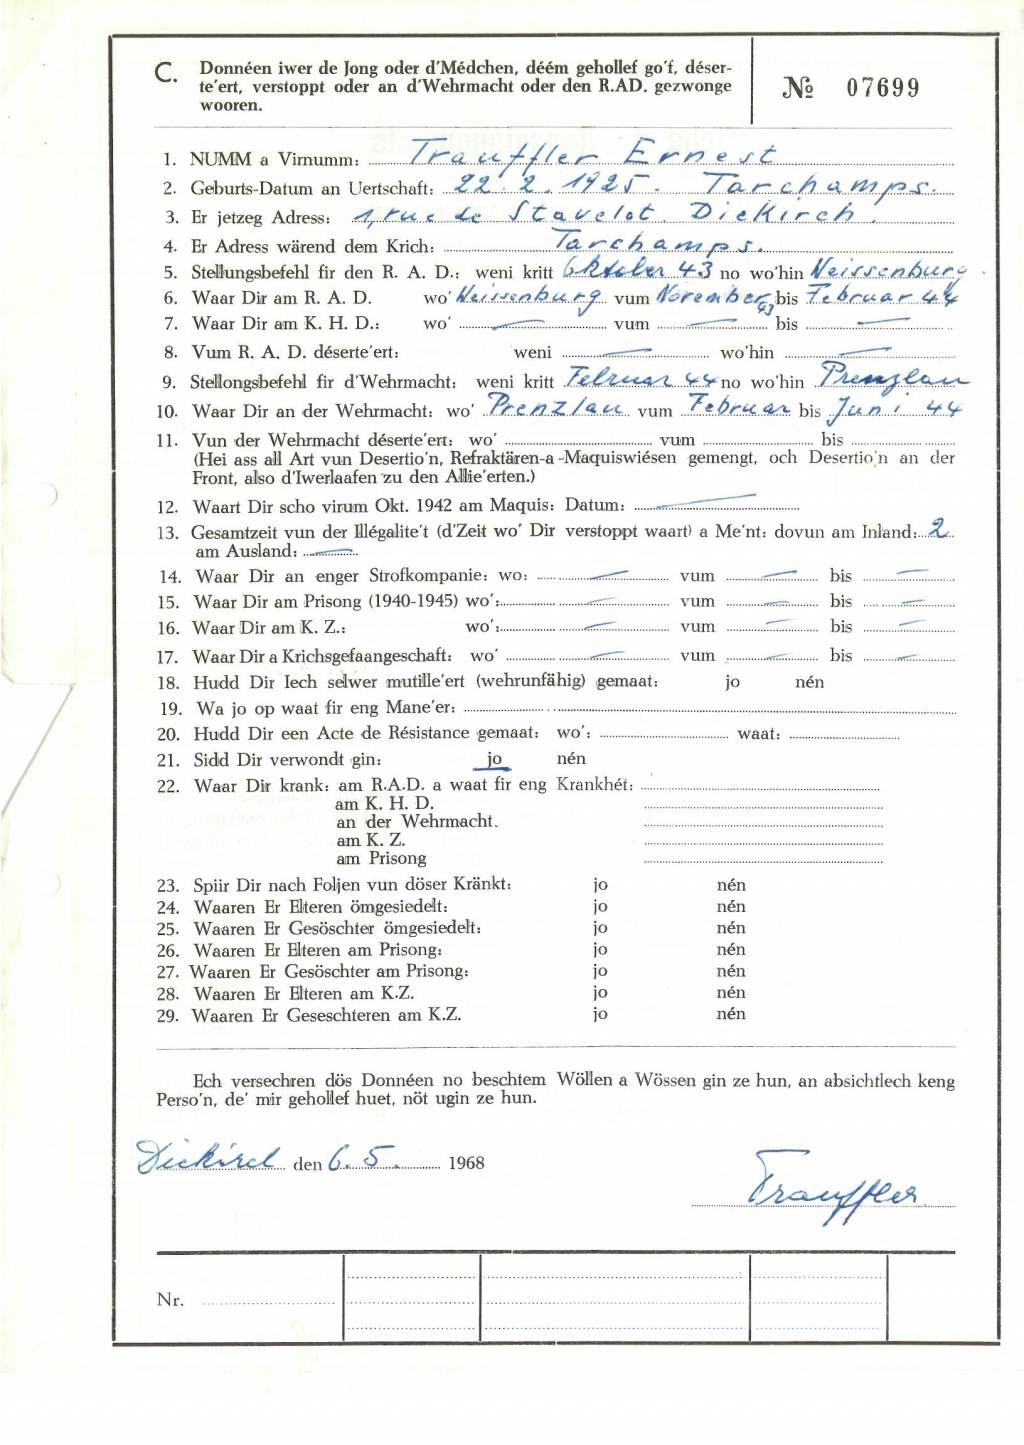 C. Donnéen iwer de Jong oder d'Médchen, déém gehollef go'f, déser-
te'ert, verstoppt oder an d'Wehrmacht oder den R.AD. gezwonge
wooren.
№ 07699
1. NUMM a Virnumm: Trauffler Ernest
2. Geburts-Datum an Uertschaft: 22.2.1925. Tarchamps.
3. Er jetzeg Adress: 1, rue de Stavelot. Diekirch.
4. Er Adress wärend dem Krich: Tarchamps.
5. Stellungsbefehl fir den R. A. D.: weni kritt Oktober 43 no wo'hin Weissenburg.
6. Waar Dir am R. A. D. wo' Weissenburg vum November 43 bis Februar 44
7. Waar Dir am K. H. D.: wo' — vum — bis —
8. Vum R. A. D. déserte'ert: weni — wo'hin —
9. Stellongsbefehl fir d'Wehrmacht: weni kritt Februar 44 no wo'hin Prenzlau
10. Waar Dir an der Wehrmacht: wo' Prenzlau vum Februar bis Juni 44
11. Vun der Wehrmacht déserte'ert: wo' vum bis
(Hei ass all Art vun Desertio'n, Refraktären-a-Maquiswiésen gemengt, och Desertio'n an der
Front, also d'Iwerlaafen zu den Allie'erten.)
12. Waart Dir scho virum Okt. 1942 am Maquis: Datum: —
13. Gesamtzeit vun der Illégalite't (d'Zeit wo' Dir verstoppt waart) a Me'nt: dovun am Inland: 2
am Ausland: —
14. Waar Dir an enger Strofkompanie: wo: — vum — bis —
15. Waar Dir am Prisong (1940-1945) wo': — vum — bis —
16. Waar Dir am K. Z.: wo': — vum — bis —
17. Waar Dir a Krichsgefaangeschaft: wo' — vum — bis —
18. Hudd Dir Iech selwer mutille'ert (wehrunfähig) gemaat: jo nén
19. Wa jo op waat fir eng Mane'er:
20. Hudd Dir een Acte de Résistance gemaat: wo': waat:
21. Sidd Dir verwondt gin: jo nén
22. Waar Dir krank: am R.A.D. a waat fir eng Krankhét:
am K. H. D.
an der Wehrmacht.
am K. Z.
am Prisong
23. Spiir Dir nach Foljen vun döser Kränkt: jo nén
24. Waaren Er Elteren ömgesiedelt: jo nén
25. Waaren Er Gesöschter ömgesiedelt: jo nén
26. Waaren Er Elteren am Prisong: jo nén
27. Waaren Er Gesöschter am Prisong: jo nén
28. Waaren Er Elteren am K.Z. jo nén
29. Waaren Er Geseschteren am K.Z. jo nén
Ech versechren dös Donnéen no beschtem Wöllen a Wössen gin ze hun, an absichtlech keng
Perso'n, de' mir gehollef huet, nöt ugin ze hun.
Diekirch den 6.5. 1968
Trauffler
Nr.